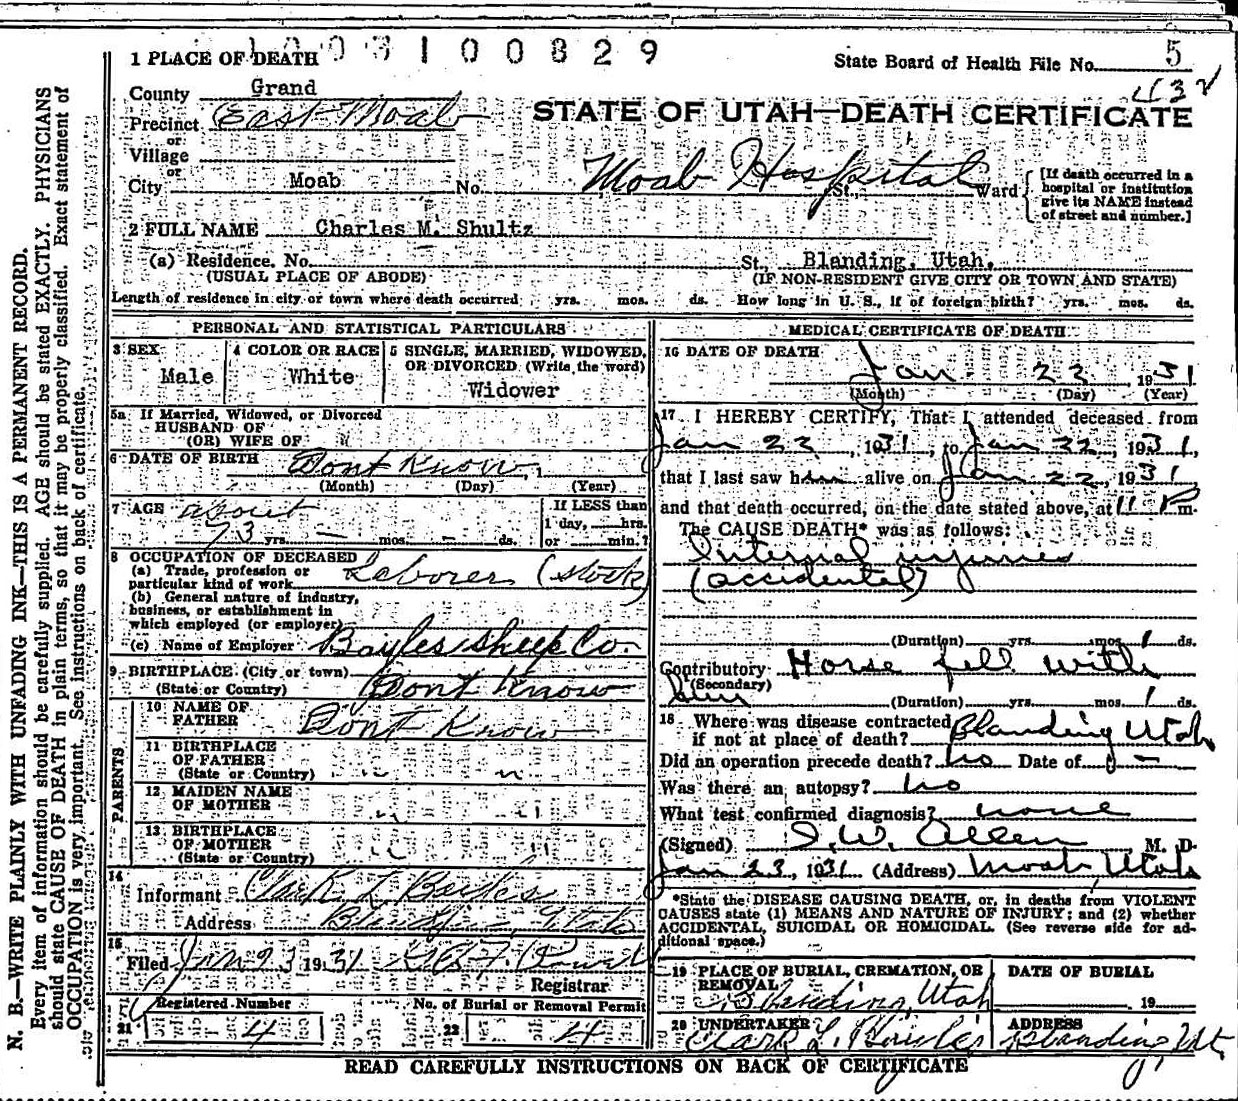 1003100829
1 PLACE OF DEATH
State Board of Health File No. 5
432
County Grand
STATE OF UTAH—DEATH CERTIFICATE
Precinct East Moab
or
Village
or
City Moab No. Moab Hospital St., Ward
[If death occurred in a hospital or institution give its NAME instead of street and number.]
2 FULL NAME Charles M. Shultz
(a) Residence. No. St. Blanding, Utah.
(USUAL PLACE OF ABODE) (IF NON-RESIDENT GIVE CITY OR TOWN AND STATE)
Length of residence in city or town where death occurred yrs. mos. ds. How long in U. S., if of foreign birth? yrs. mos. ds.
PERSONAL AND STATISTICAL PARTICULARS
3 SEX
Male
4 COLOR OR RACE
White
5 SINGLE, MARRIED, WIDOWED,
OR DIVORCED (Write the word)
Widower
5a If Married, Widowed, or Divorced
HUSBAND OF
(OR) WIFE OF
6 DATE OF BIRTH Dont Know
(Month) (Day) (Year)
7 AGE about
73 yrs. — mos. — ds.
If LESS than
1 day, hrs.
or min.?
8 OCCUPATION OF DECEASED
(a) Trade, profession or
particular kind of work Laborer (stock)
(b) General nature of industry,
business, or establishment in
which employed (or employer)
(c) Name of Employer Bayles Sheep Co.
9 BIRTHPLACE (City or town)
(State or Country) Dont Know
PARENTS
10 NAME OF
FATHER Dont Know
11 BIRTHPLACE
OF FATHER
(State or Country) " "
12 MAIDEN NAME
OF MOTHER " "
13 BIRTHPLACE
OF MOTHER
(State or Country) " "
14
Informant Clark L
Address Utah
15
Filed Jan 23 1931
Registrar
Registered Number
21 4
No. of Burial or Removal Permit
22 4
MEDICAL CERTIFICATE OF DEATH
16 DATE OF DEATH
Jan 22, 1931
(Month) (Day) (Year)
17 I HEREBY CERTIFY, That I attended deceased from
Jan 22, 1931, to Jan 22, 1931,
that I last saw him alive on Jan 22, 1931
and that death occurred, on the date stated above, at 11 P m.
The CAUSE DEATH* was as follows:
Internal injuries
(accidental)
(Duration) yrs. mos. 1 ds.
Contributory Horse fell with
(Secondary) him
(Duration) yrs. mos. 1 ds.
18 Where was disease contracted
if not at place of death? Blanding Utah
Did an operation precede death? no Date of —
Was there an autopsy? no
What test confirmed diagnosis? none
(Signed) I. W. Allen M. D.
Jan 23, 1931 (Address) Moab, Utah
*State the DISEASE CAUSING DEATH, or, in deaths from VIOLENT
CAUSES state (1) MEANS AND NATURE OF INJURY; and (2) whether
ACCIDENTAL, SUICIDAL OR HOMICIDAL. (See reverse side for ad-
ditional space.)
19 PLACE OF BURIAL, CREMATION, OR
REMOVAL
Blanding, Utah
DATE OF BURIAL
19
20 UNDERTAKER
Clark L.
ADDRESS
Blanding, Ut.
READ CAREFULLY INSTRUCTIONS ON BACK OF CERTIFICATE
N. B.—WRITE PLAINLY WITH UNFADING INK—THIS IS A PERMANENT RECORD.
Every item of information should be carefully supplied. AGE should be stated EXACTLY. PHYSICIANS
should state CAUSE OF DEATH in plain terms, so that it may be properly classified. Exact statement of
OCCUPATION is very important. See instructions on back of certificate.